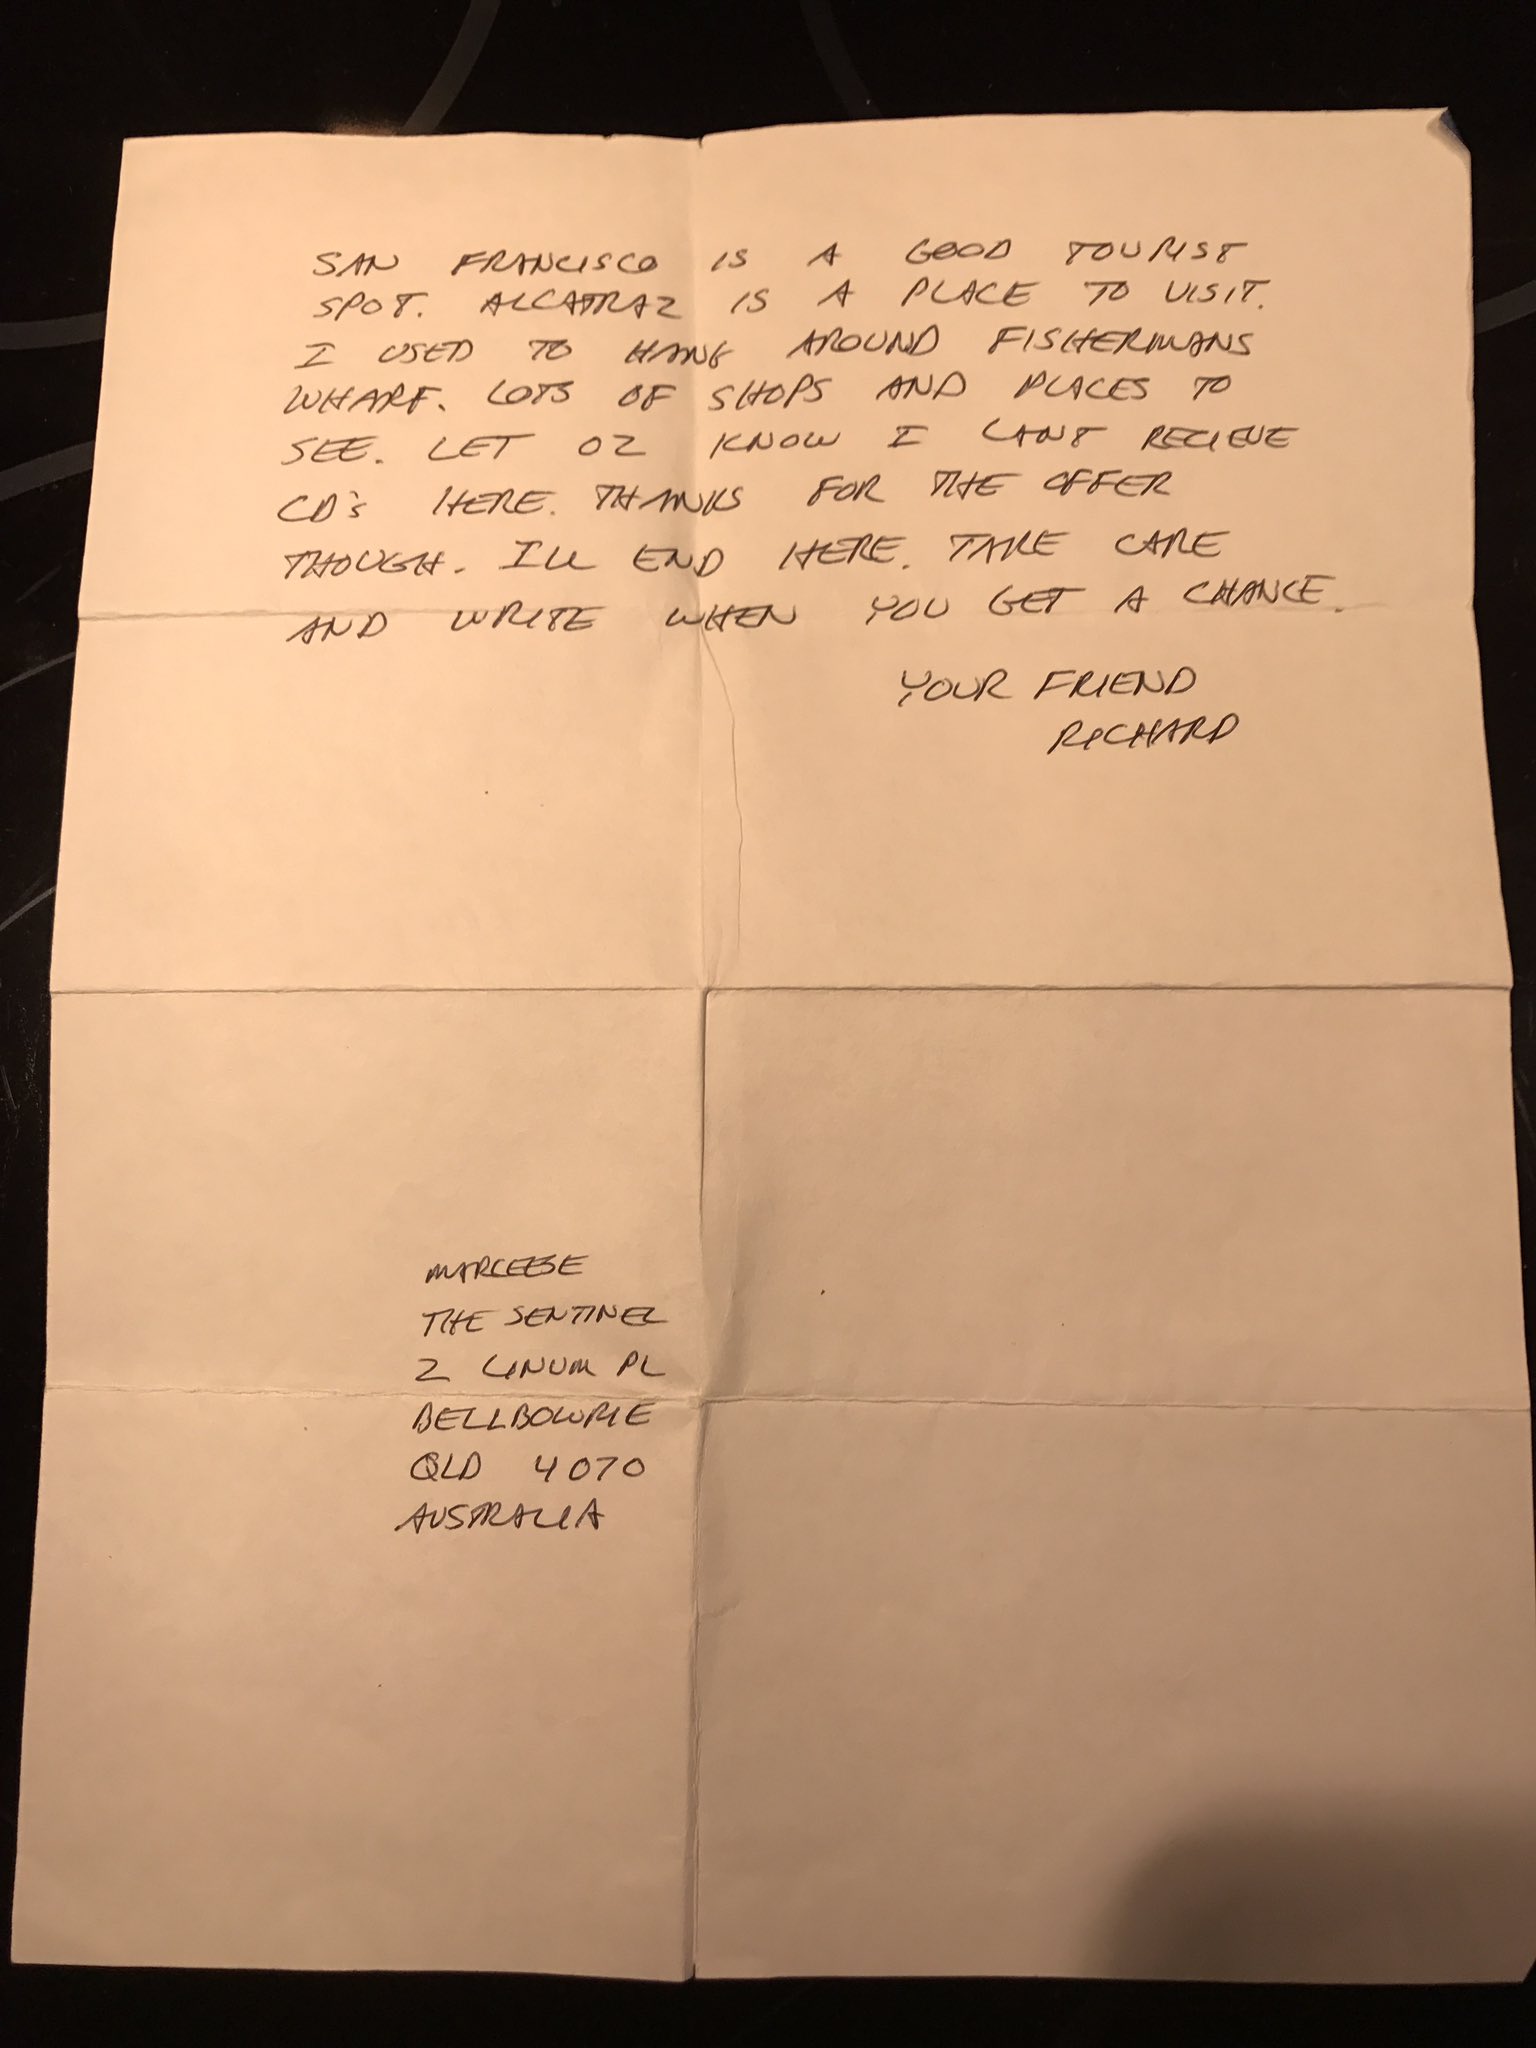 SAN FRANCISCO IS A GOOD TOURIST
SPOT. ALCATRAZ IS A PLACE TO VISIT.
I USED TO HANG AROUND FISHERMANS
WHARF. LOTS OF SHOPS AND PLACES TO
SEE. LET OZ KNOW I CANT RECIEVE
CD's HERE. THANKS FOR THE OFFER
THOUGH. I'LL END HERE. TAKE CARE
AND WRITE WHEN YOU GET A CHANCE.
YOUR FRIEND
RICHARD
MARCEESE
THE SENTINEL
2 LINUM PL
BELLBOWRIE
QLD 4070
AUSTRALIA